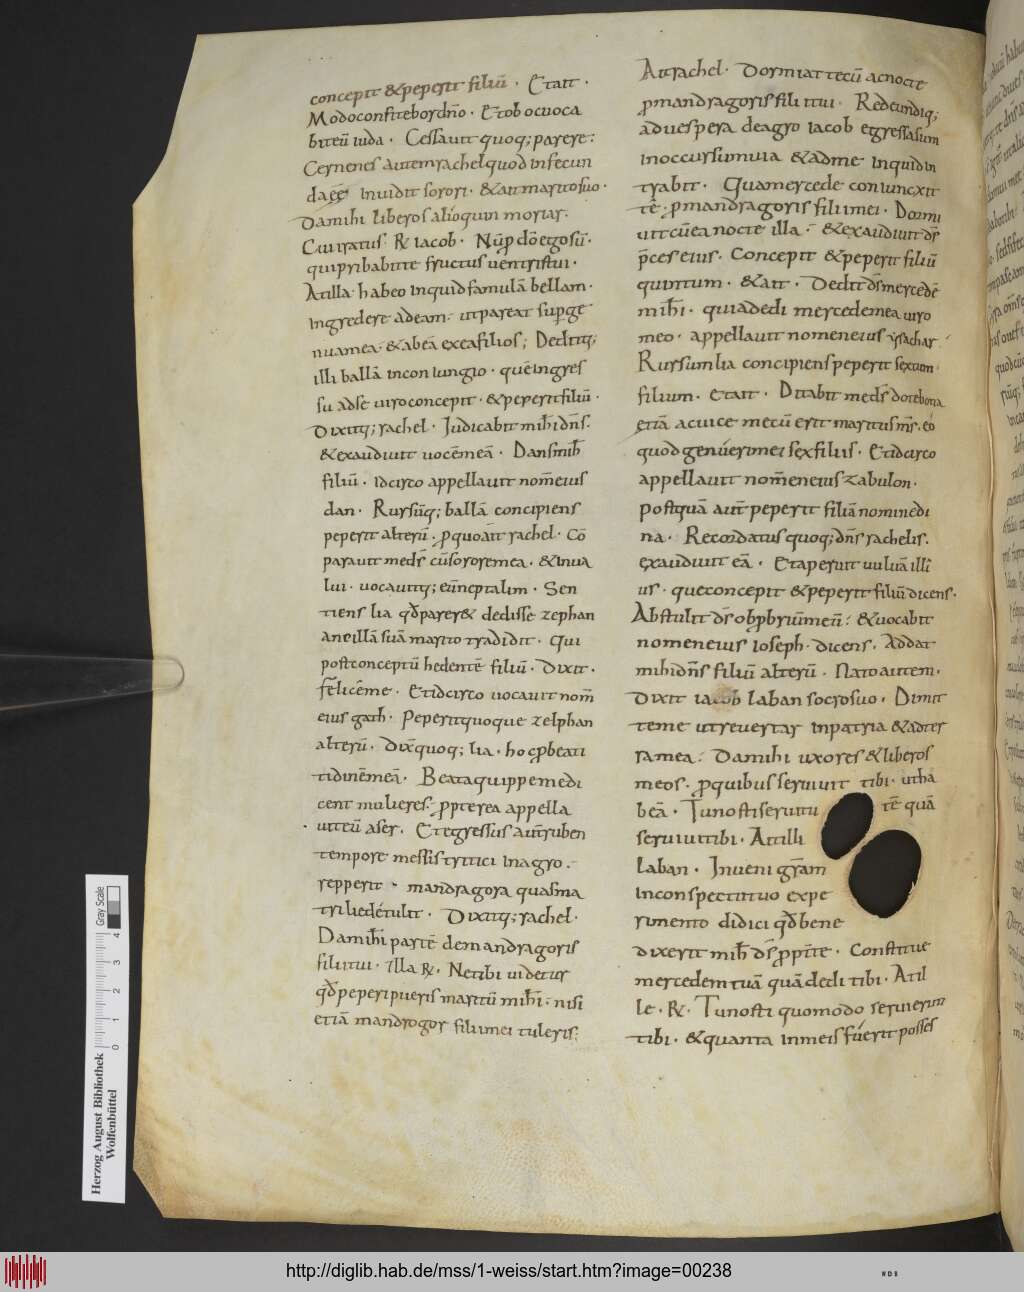 concepit &peperit filiū · Etait ·
Modoconfitebordn̄o · Etob ocuoca
biteū iuda · Cessauit quoq; parere:
Cernens autemrachelquod infecun
da eēt inuidit sorori · &aitmaritosuo ·
Damihi liberos alioquin moriar ·
Cui iratus · R& iacob · Nū p dō egosū ·
quipriuabitte fructus uentristui ·
Atilla habeo inquid famulā bellam ·
ingredere adeam · utpareat sup ge
nuamea · &abeā exeafilios; Deditq;
illi ballā inconiungio · quē ingres
su adse uiroconcepit · &peperitfiliū ·
Dixitq; rachel · Iudicabit mihi dn̄s ·
&exaudiuit uocēmeā · Dansmih̄
filiū · idcirco appellauit nom̄eius
dan · Rursūq; ballā concipiens
peperit alterū · pquoait rachel · Cō
parauit meds̄ cūsororemea · &inua
lui · uocauitq; eūneptalim · Sen
tiens lia qd̄parer& dedisse zephan
ancillā suā marito tradidit · Qui
postconceptū hedentē filiū · dixit ·
felicēme · Etidcirco uocauit nom̄
eius gath · Peperitquoque zelphan
alterū · dix̄quoq; lia · hoc pbeati
tudinēmeā · Beataquippemedi
cent mulieres · ppterea appella
uiteū aser · Etegressus autruben
tempore messis tritici inagro ·
repperit · mandragora quasma
triliedetulit · Dixitq; rachel ·
Damih̄i partē demandragoris
filiitui · illa R& · Netibi uidetur
qd̄peperipueris maritū mih̄i · nisi
etiā mandrogor filiimei tuleris ·
Aitrachel · Dormiattecū acnocte
pmandragorisfiliitui · Redeundiq;
aduespera deagro iacob egressasum
inoccursumuia &adme inquidin
trabit · Quamercede coniuncxit
tē · pmandragoris filiimei · Dormi
uitcūeanocte illa · &exaudiuit ds̄
pceseius · Concepit &peperit filiū
quintum · &ait · Dedit ds̄mercedē
mih̄i · quiadedi mercedemea uiro
meo · appellauit nomeneius ysachar ·
Rursumlia concipienspeperit sextum ·
filium · Etait · Ditabit meds̄ dotebona
etiā acuice mecū erit maritusm̄s · eo
quodgenuerimei sexfiliis · Etidcirco
appellauit nom̄eneius zabulon ·
postquā aut̄ peperit filiānominedi
na · Recordatusquoq; dn̄s rachelis ·
exaudiuit eā · Etaperuit uuluā illi
us · queconcepit &peperit filiū dicens ·
Abstulit ds̄ obpbriūmeū · &uocabit
nomeneius ioseph · dicens · Addat
mihidn̄s filiū alterū · Natoautem ·
dixit iacob laban socrosuo · Dimit
teme utreuertar inpatria &adter
ramea · Damihi uxores &liberos
meos · pquibus seruiuit tibi · utha
beā · Tunostiseruitu tē quā
seruiuitibi · Aitilli
laban · Inueni gr̄am
inconspectutuo expe
rimento didici qd̄bene
dixerit mih̄ ds̄ ppt̄te · Constitue
mercedemtuā quā dedi tibi · Atil
le · R& · Tunosti quomodo seruierim
tibi · &quanta inmeis fuerit posses
Herzog August Bibliothek
Wolfenbüttel
0 1 2 3 4
Gray Scale
http://diglib.hab.de/mss/1-weiss/start.htm?image=00238